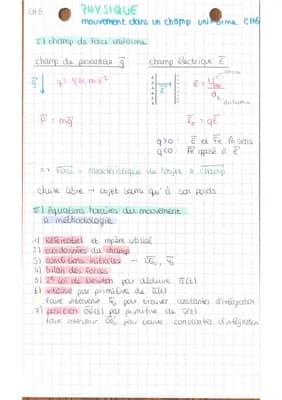 CH6
PHYSIQUE
mouvement dans un champ uniforme CH6
I) champ de force uniforme
champ de pesanteur g⃗
champ électrique E⃗
g = 9,81 m.s²
E = U / d
distance
P⃗ = mg⃗
F⃗e = qE⃗
q>0 : E⃗ et F⃗e m̂ sens
q<0 : F⃗e opposé à E⃗
=> Force = caractéristique de l'objet x champ
chute libre → objet soumis qu'à son poids
II) équations horaires du mouvement
méthodologie
1) Référentiel et repère utilisé
2) coordonnées du champ
3) conditions initiales → OG⃗₀, v⃗₀
4) bilan des forces
5) 2e loi de Newton par déduire a⃗(t)
6) vitesse par primitive de a⃗(t)
faire intervenir v⃗₀ pour trouver constantes d'intégration
7) position OG⃗(t) par primitive de v⃗(t)
faire intervenir OG⃗₀ pour trouver constantes d'intégration